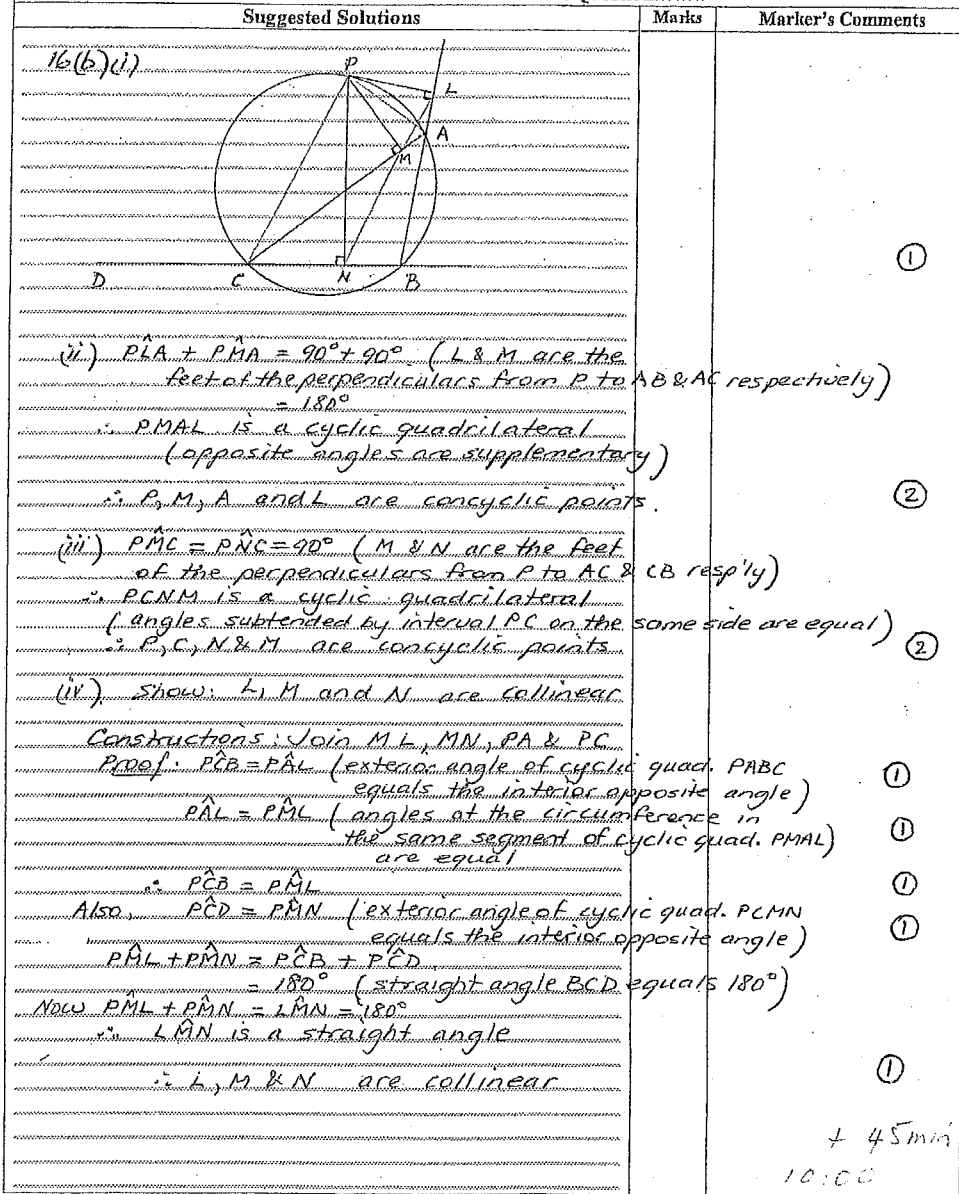 Suggested Solutions Marks Marker's Comments
16(b)(i)
P
L
A
M
D C N B
①
(ii) PL̂A + PM̂A = 90° + 90° (L & M are the
feet of the perpendiculars from P to AB & AC respectively)
= 180°
∴ PMAL is a cyclic quadrilateral
(opposite angles are supplementary)
∴ P, M, A and L are concyclic points. ②
(iii) PM̂C = PN̂C = 90° (M & N are the feet
of the perpendiculars from P to AC & CB resp'ly)
∴ PCNM is a cyclic quadrilateral
(angles subtended by interval PC on the same side are equal)
∴ P, C, N & M are concyclic points ②
(iv) Show: L, M and N are collinear
Constructions: Join ML, MN, PA & PC
Proof: PĈB = PÂL (exterior angle of cyclic quad. PABC ①
equals the interior opposite angle)
PÂL = PM̂L (angles at the circumference in
the same segment of cyclic quad. PMAL) ①
are equal
∴ PĈB = PM̂L ①
Also, PĈD = PM̂N (exterior angle of cyclic quad. PCMN ①
equals the interior opposite angle)
PM̂L + PM̂N = PĈB + PĈD
= 180° (straight angle BCD equals 180°)
Now PM̂L + PM̂N = LM̂N = 180°
∴ LM̂N is a straight angle
∴ L, M & N are collinear ①
+ 45 min
10:00